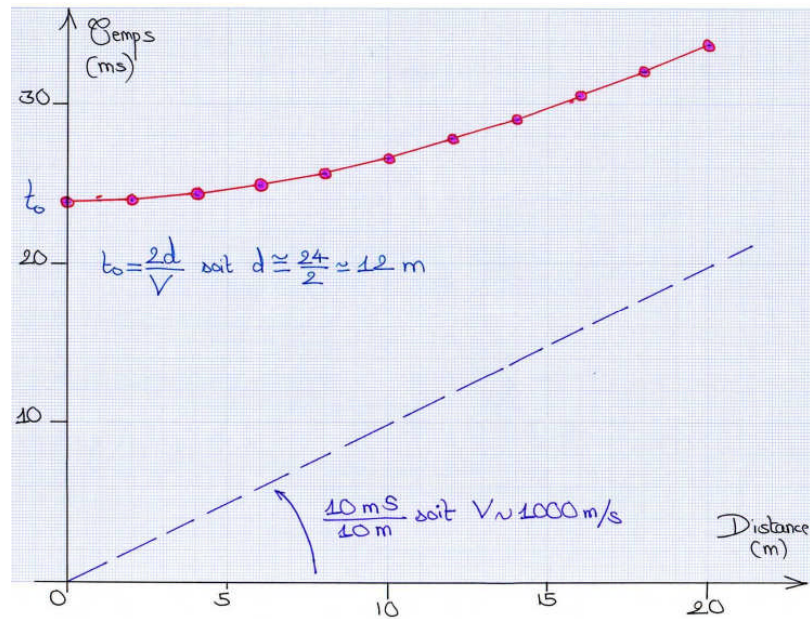 Temps
(ms)
30
t₀
20
t₀ = 2d/V soit d ≅ 24/2 ≃ 12 m
10
10 ms/10 m soit V ~ 1000 m/s
Distance
(m)
0
5
10
15
20